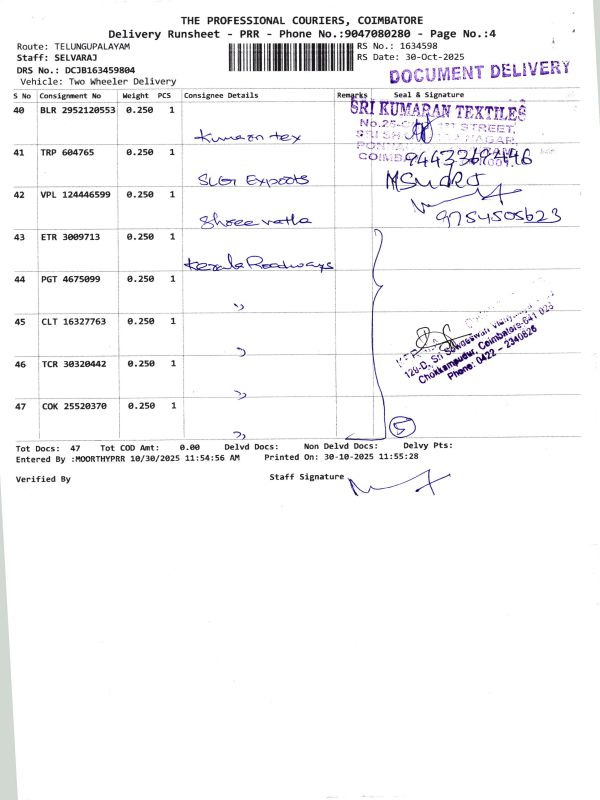 THE PROFESSIONAL COURIERS, COIMBATORE
Delivery Runsheet - PRR - Phone No.:9047080280 - Page No.:4
Route: TELUNGUPALAYAM
RS No.: 1634598
Staff: SELVARAJ
RS Date: 30-Oct-2025
DRS No.: DCJB163459804
Vehicle: Two Wheeler Delivery
DOCUMENT DELIVERY
S No Consignment No Weight PCS Consignee Details Remarks Seal & Signature
40 BLR 2952120553 0.250 1
SRI KUMARAN TEXTILES
No.25-
STREET,
Kumaran tex
41 TRP 604765 0.250 1
9443369446
SLGI Exports
42 VPL 124446599 0.250 1
Shree
9754505623
43 ETR 3009713 0.250 1
Kerala Roadways
44 PGT 4675099 0.250 1
"
45 CLT 16327763 0.250 1
"
129-D, Sri
Chokkampudur, Coimbatore-641 026
Phone: 0422 - 2340826
46 TCR 30320442 0.250 1
"
47 COK 25520370 0.250 1
"
5
Tot Docs: 47 Tot COD Amt: 0.00 Delvd Docs: Non Delvd Docs: Delvy Pts:
Entered By :MOORTHYPRR 10/30/2025 11:54:56 AM Printed On: 30-10-2025 11:55:28
Verified By
Staff Signature